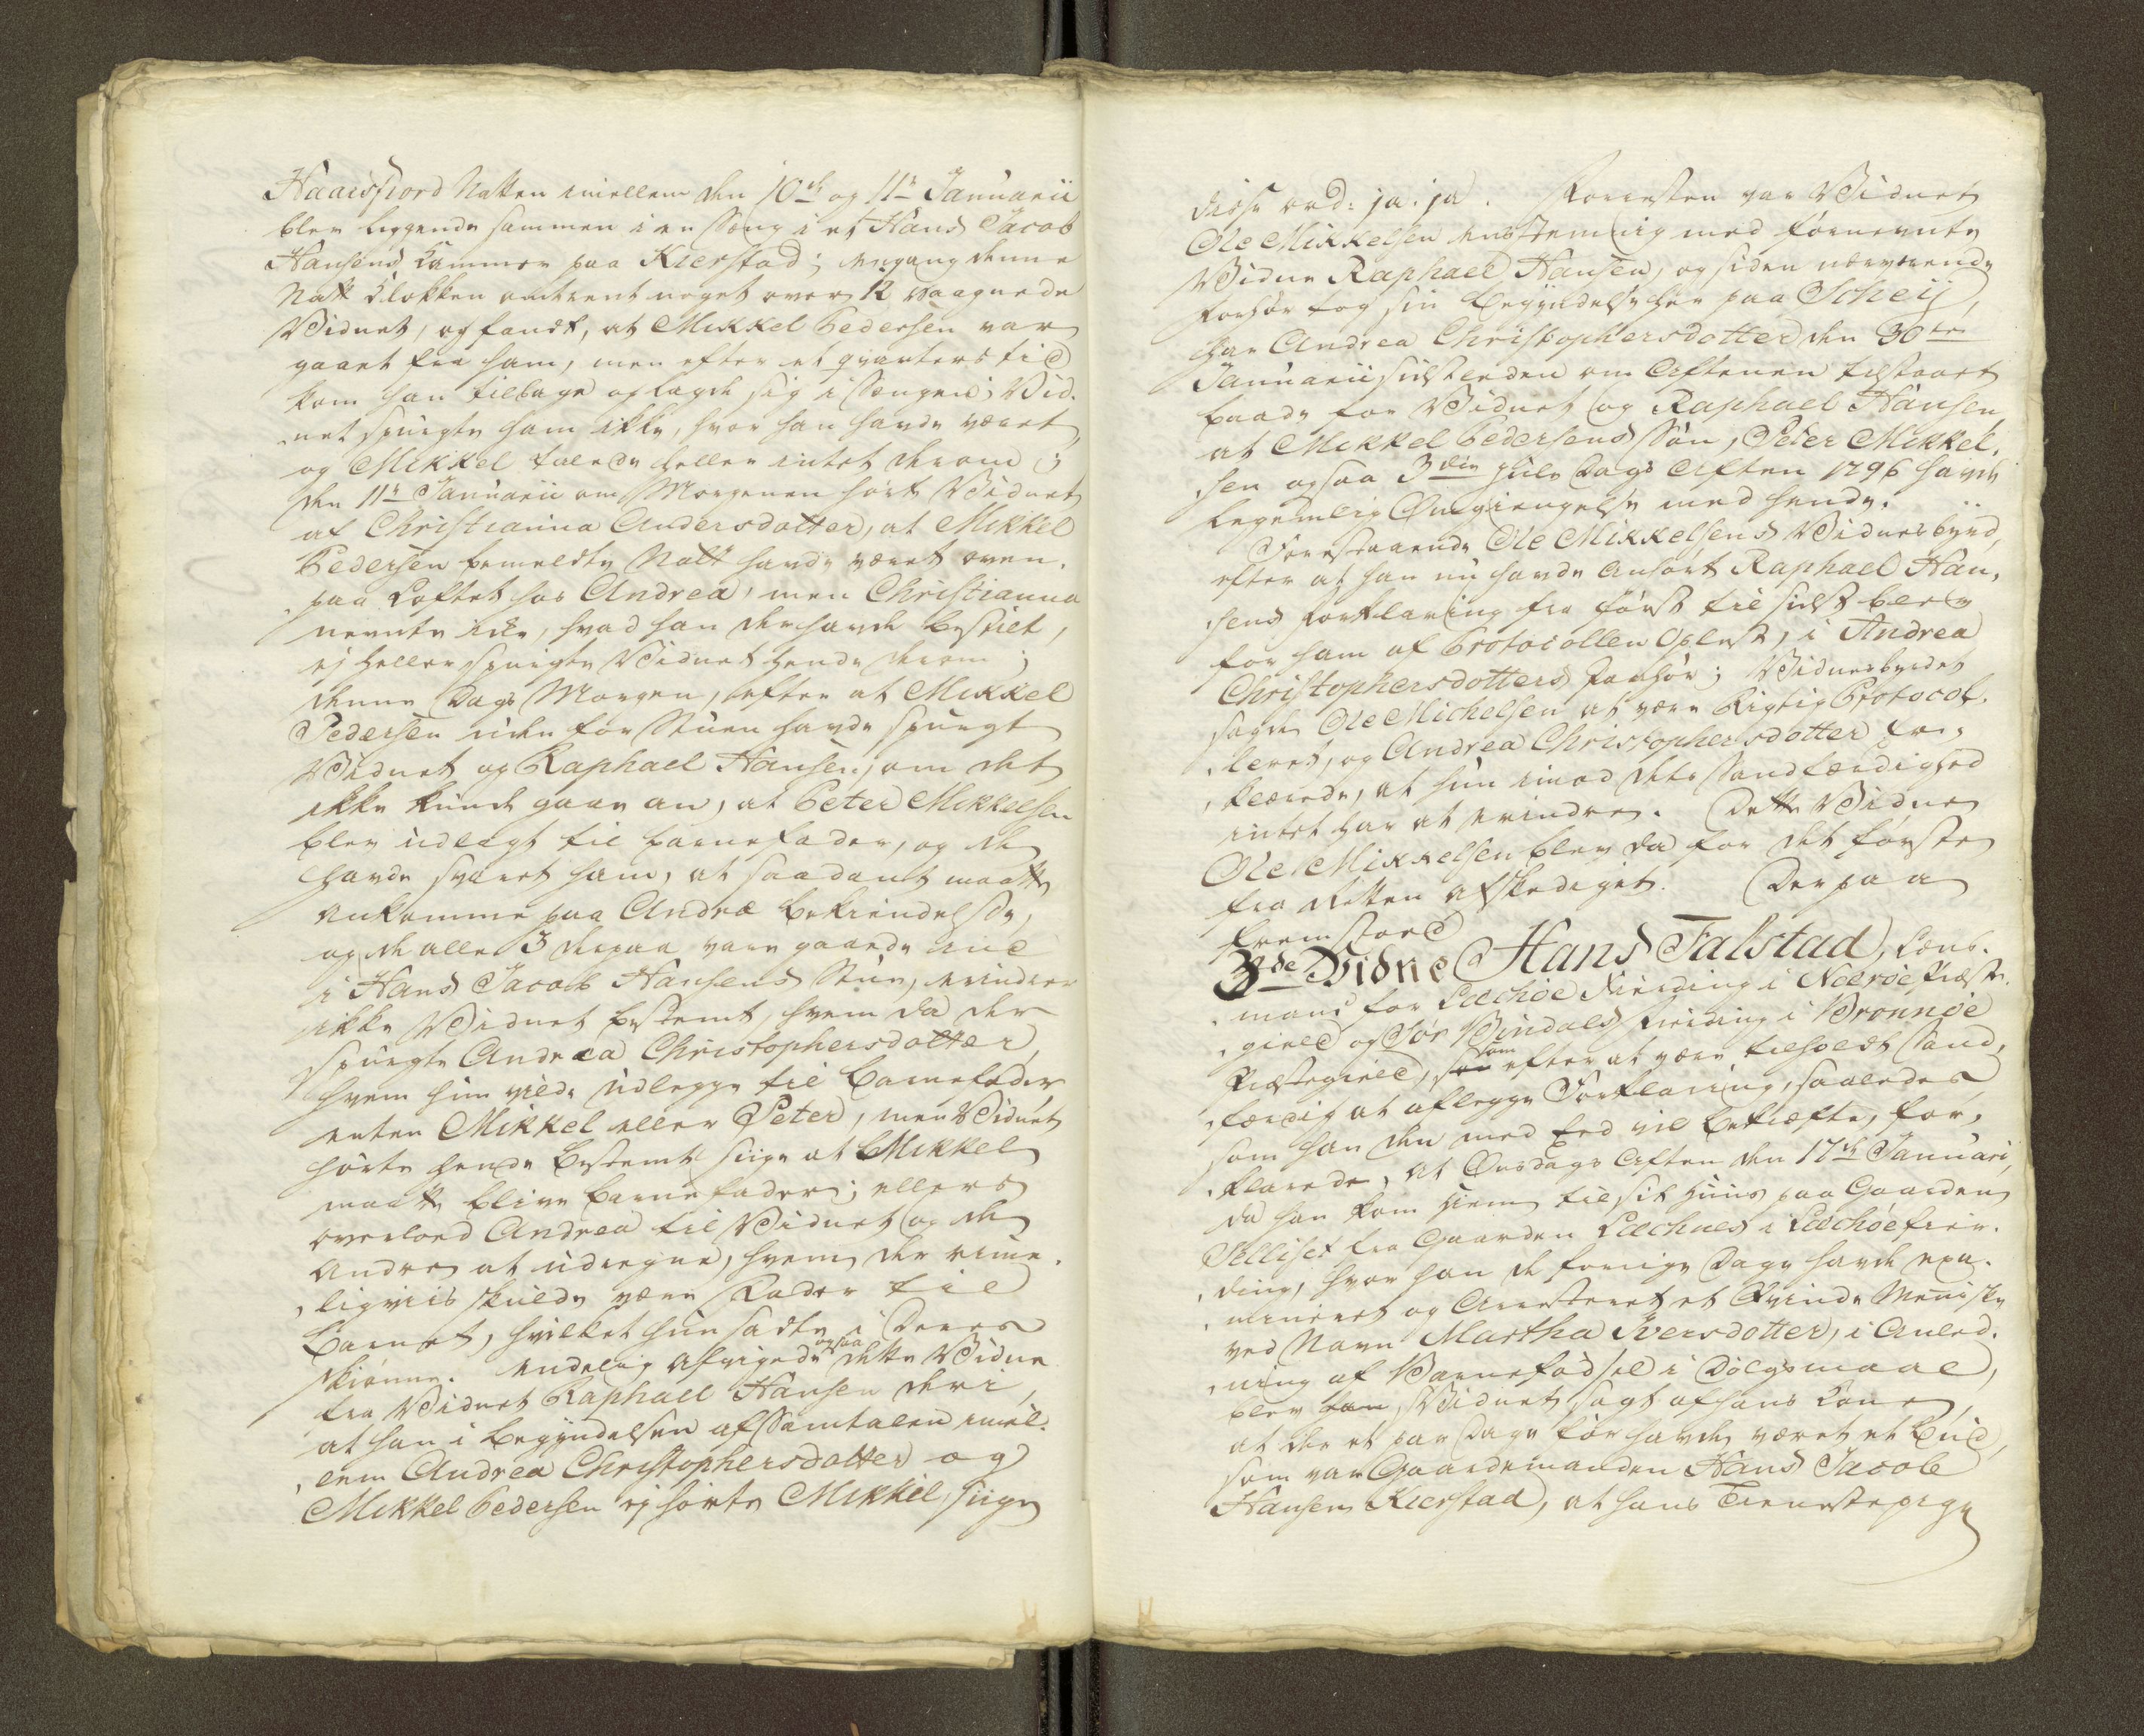 Haarsfiord Natten imellem den 10de og 11te Januarii
blev liggende sammen i en Seng i et Hans Jacob
Hansens Kammer paa Kierstad; engang denne
Natt Klokken omtrent noget over 12 vaagnede
Vidnet, og fandt, at Mikkel Pedersen var
gaaet fra ham, men efter et qvarters tid
kom han tilbage og lagde sig i Sengen; Vid-
net spurgte ham ikke, hvor han havde været,
og Mikkel talede heller intet derom;
den 11te Januarii om Morgenen hørte Vidnet
af Christianna Andersdatter, at Mikkel
Pedersen bemeldte Natt havde været oven
paa Loftet hos Andrea, men Christianna
nevnte ikke, hvad han der havde bestilt,
ej heller spurgte Vidnet hende derom;
denne Dags Morgen, efter at Mikkel
Pedersen uden for Stuen havde spurgt
Vidnet og Raphael Hansen, om det
ikke kunde gaae an, at Peter Mikkelsen
blev udlagt til barnefader, og de
havde svaret ham, at saadant maatte
ankomme paa Andreæ bekiendelse,
og de alle 3 derpaa vare gaaede ind
i Hans Jacob Hansens Stue, erindrer
ikke Vidnet bestemt, hvem da der
spurgte Andrea Christophersdatter,
hvem hun vilde udlegge til Barnefader
enten Mikkel eller Peter, men Vidnet
hørte hende bestemt siige at Mikkel
maatte blive barnefader; ellers
overlod Andrea til Vidnet og de
andre at udregne, hvem der rime-
ligviis skulde være Fader til
barnet, hvilket hun satte i Deres
skiønne. Endelig afvigede ogsaa dette Vidne
fra Vidnet Raphael Hansen deri,
at han i begyndelsen af Samtalen imel-
lem Andrea Christophersdatter og
Mikkel Pedersen ej hørte Mikkel siige
disse ord: ja. ja. Forresten var Vidnet
Ole Mikkelsen eenstemmig med førnevnte
Vidne Raphael Hansen, og siden nærværende
Forhør tog sin begyndelse her paa Scheij,
har Andrea Christophersdotter den 30te
Januarii sidstleden om Aftenen tilstaaet
baade for Vidnet og Raphael Hansen,
at Mikkel Pedersens Søn, Peter Mikkel-
sen ogsaa 3die Jule Dags Aften 1796 havde
legemlig Omgiengelse med hende.
Forestaaende Ole Mikkelsens Vidnesbyrd,
efter at han nu havde anhørt Raphael Han-
sens Forklaring fra først til sidst blev
for ham af Protocollen Oplæst, i Andrea
Christophersdotters Paahør; Vidnesbyrdet
sagde Ole Michelsen at være Rigtig Protocol-
leret, og Andrea Christophersdotter for-
klarede, at hun imod dets Sandfærdighed
intet har at erindre. Dette Vidne
Ole Mikkelsen blev da for det første
fra Retten afskediget. Derpaa
fremstoed
3de Vidne Hans Falstad, Lens-
mand for Lechøe Fierding i Næroe Præste-
gield og Sør Bindals Fierding i Brønnøe
Præstegield, som efter at være tilholdt Sand-
færdig at aflegge Forklaring, saaledes
som han den med Eed vil bekræfte, for-
klarede, at Onsdags Aften den 17de Januari,
da han kom hiem til sit Huus paa Gaarden
Selliset fra Gaarden Lechnes i Lechøe fier-
ding, hvor han de forrige Dage havde exa-
mineret og Arresteret et Qvinde Menniske
ved Navn Martha Iversdotter, i Anled-
ning af Barnefødsel i Dølgsmaal,
blev Vidnet sagt af hans Kone,
at der et par Dage før havde været et Bud,
som var Gaardmanden Hans Jacob
Hansen Kierstad, at hans Tienestepige